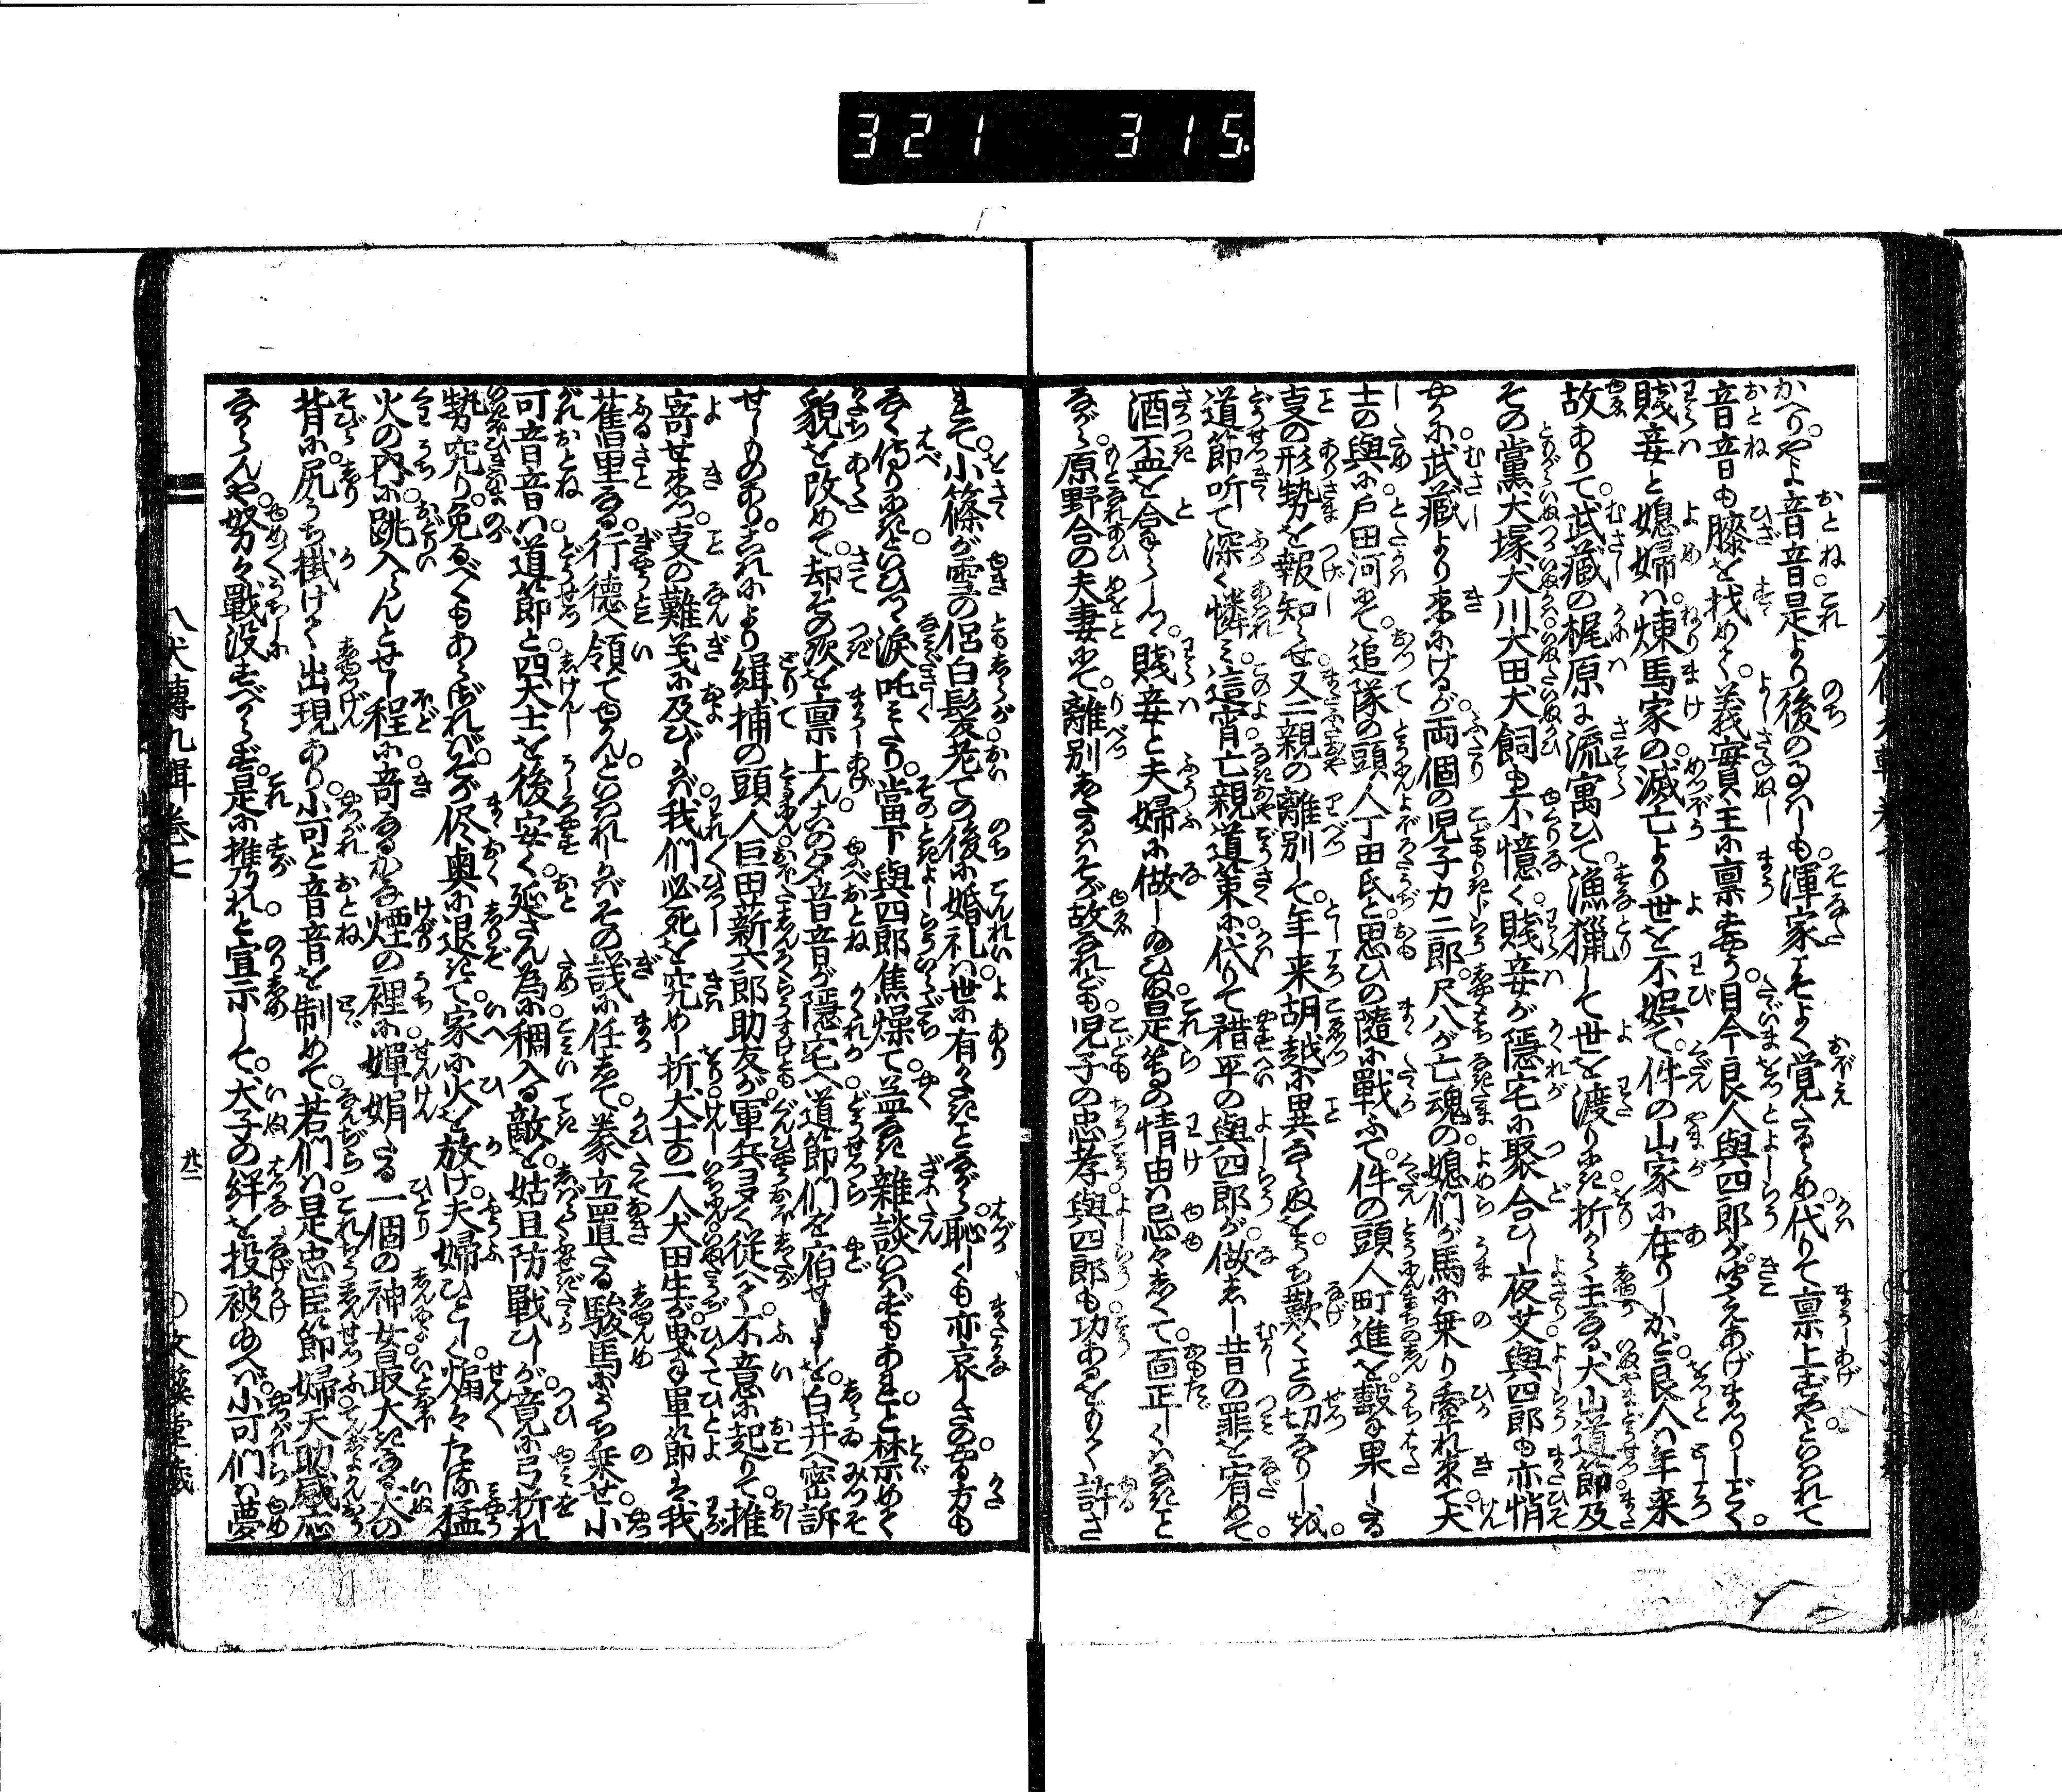 321 315.
かへりや。よ音音是より後の事ハしも。渾家こそよく覚たるらめ。代りて稟上ずやといはれて
音音も膝を找めて。義實主に稟すやう。自今良人與四郎が。聞えあげまつりしごとく。
賤妾と媳婦ハ。煉馬家の滅亡より世を不娯て。件の山家に在りしかど。良人ハ年来
故ありて。武藏の梶原に流寓ひて。漁獵して世を渡りにき。折から主なる犬山道節及
その黨犬塚犬川犬田犬飼も。不憶く賤妾が隱宅に聚合ひし夜艾。與四郎も亦悄
やかに。武藏より来にけるが。両個の児子力二郎。尺八が亡魂の。媳們が馬に乗り牽れ来て。犬
士の與に。戸田河にて。追隊の頭人丁田氏と思ひの隨に戰ふて。件の頭人町進を撃も果したる
支の形勢を報知らせ。又二親の離別して。年来胡越に異ならぬを。うち歎くことの切なりしを。
道節听て深く憐み。這宵亡親道策に代りて。襟平の與四郎が。做しし昔の罪を宥めて。
酒盃を合らしつ。賤妾と夫婦に做し給ひぬ。是等の情由ハ忌々しくて。面正しくハなきこと
ながら。原野合の夫妻にて。離別したるハそが故なれども。児子の忠孝與四郎も功あるをもて許さ
れて。小篠が雪の侶白髪。老ての後に婚礼ハ。世に有がたきことながら。恥しくも亦哀しさの。やる方も
なく侍りにきといひつゝ涙吒みたり。當下與四郎焦燥て。益なき雑談いはずもあれと禁めて
貌を改めて。却その次を稟上ん。この夕音音が隱宅へ道節們を宿せしを。白井へ密訴
せしものあり。これにより緝捕の頭人巨田薪六郎助友が。軍兵夛く従へて。不意に起りて推
寄せ来つ。支の難義に及びしかバ。我們必死を究めし折。犬士の一人犬田生が。曳手單節を我
舊里なる。行徳へ領てゆかんといはれしかバその議に任して。豢立置たる駿馬にうち乗せ。小
可音音ハ。道節と四犬士を。後安く延さん為に稠入る敵を。姑且防戰ひしが竟に弓折れ
勢究り。免るべくもあらざれバ。そが侭奥に退きて。家に火を放け夫婦ひとしく。煽々たる猛
火の内に跳入らんとせし程に。奇なるかな煙の裡に。嬋娟たる一個の神女。最大きなる犬の
背に尻うち掛けて出現あり。小可と音音を制めて。若們ハ是忠臣節婦。天助感応
なからんや。努々戰没すべからず。是に推乃れと宣示して。犬子の絆を投被給へバ。小可們ハ夢
八犬傳九輯巻七
廿一
○文溪堂蔵